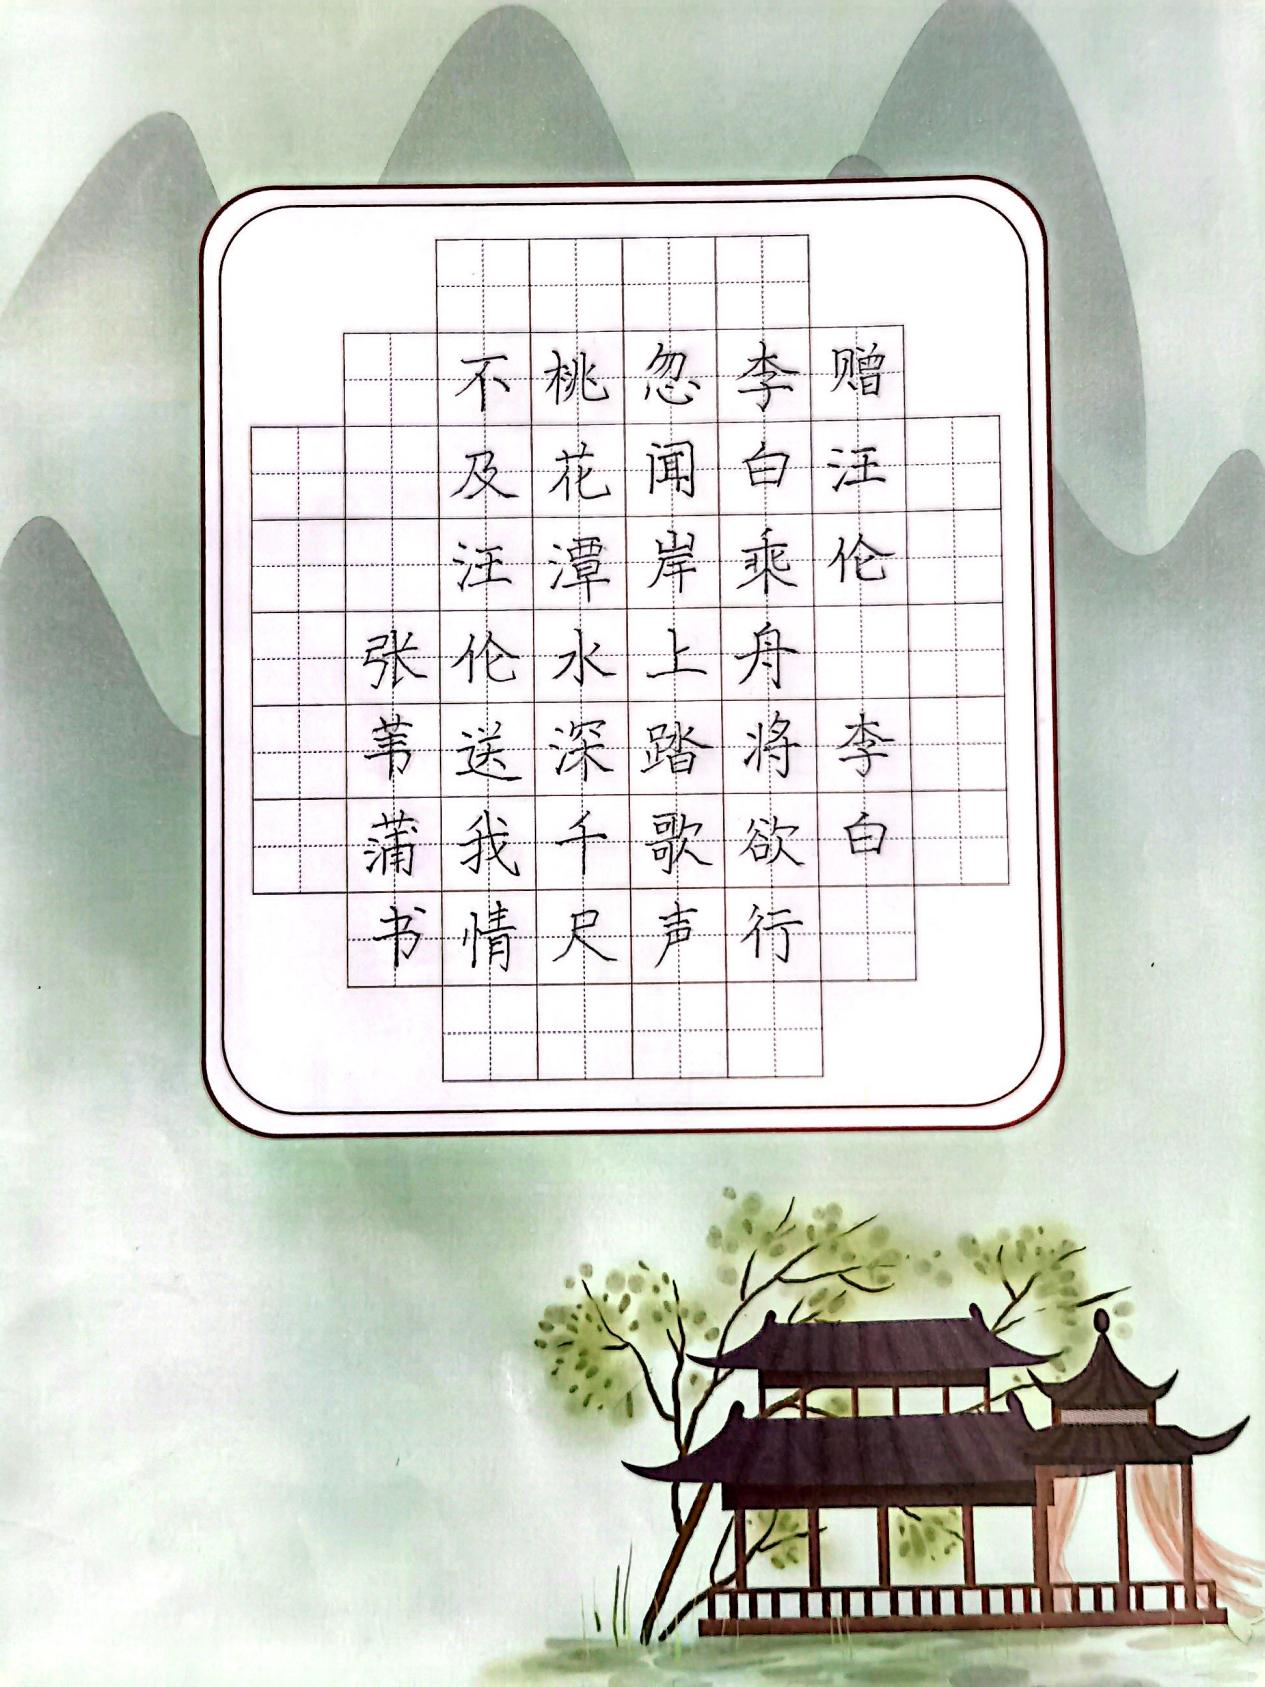 赠汪伦 李白
李白乘舟将欲行
忽闻岸上踏歌声
桃花潭水深千尺
不及汪伦送我情
张苇蒲书